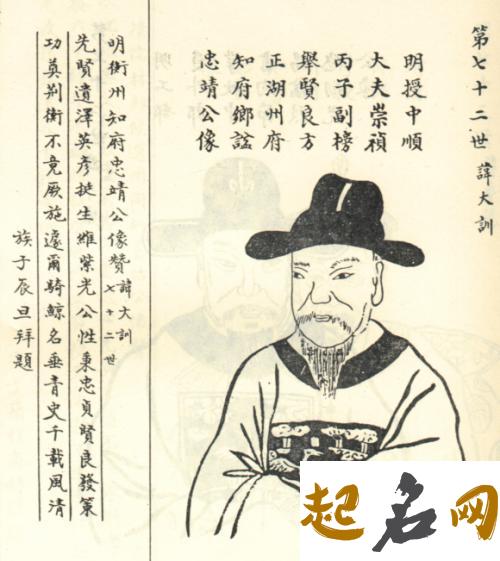 第七十二世 諱大訓
明授中順
大夫崇禎
丙子副榜
舉賢良方
正湖州府
知府鄉諡
忠靖公像
明衡州知府忠靖公像贊 諱大訓 七十二世
先賢遺澤英彥挺生維紫光公性秉忠貞賢良發策
功奠荊衡不竟厥施遽爾騎鯨名垂青史千載風清
族子辰旦拜題
起名网